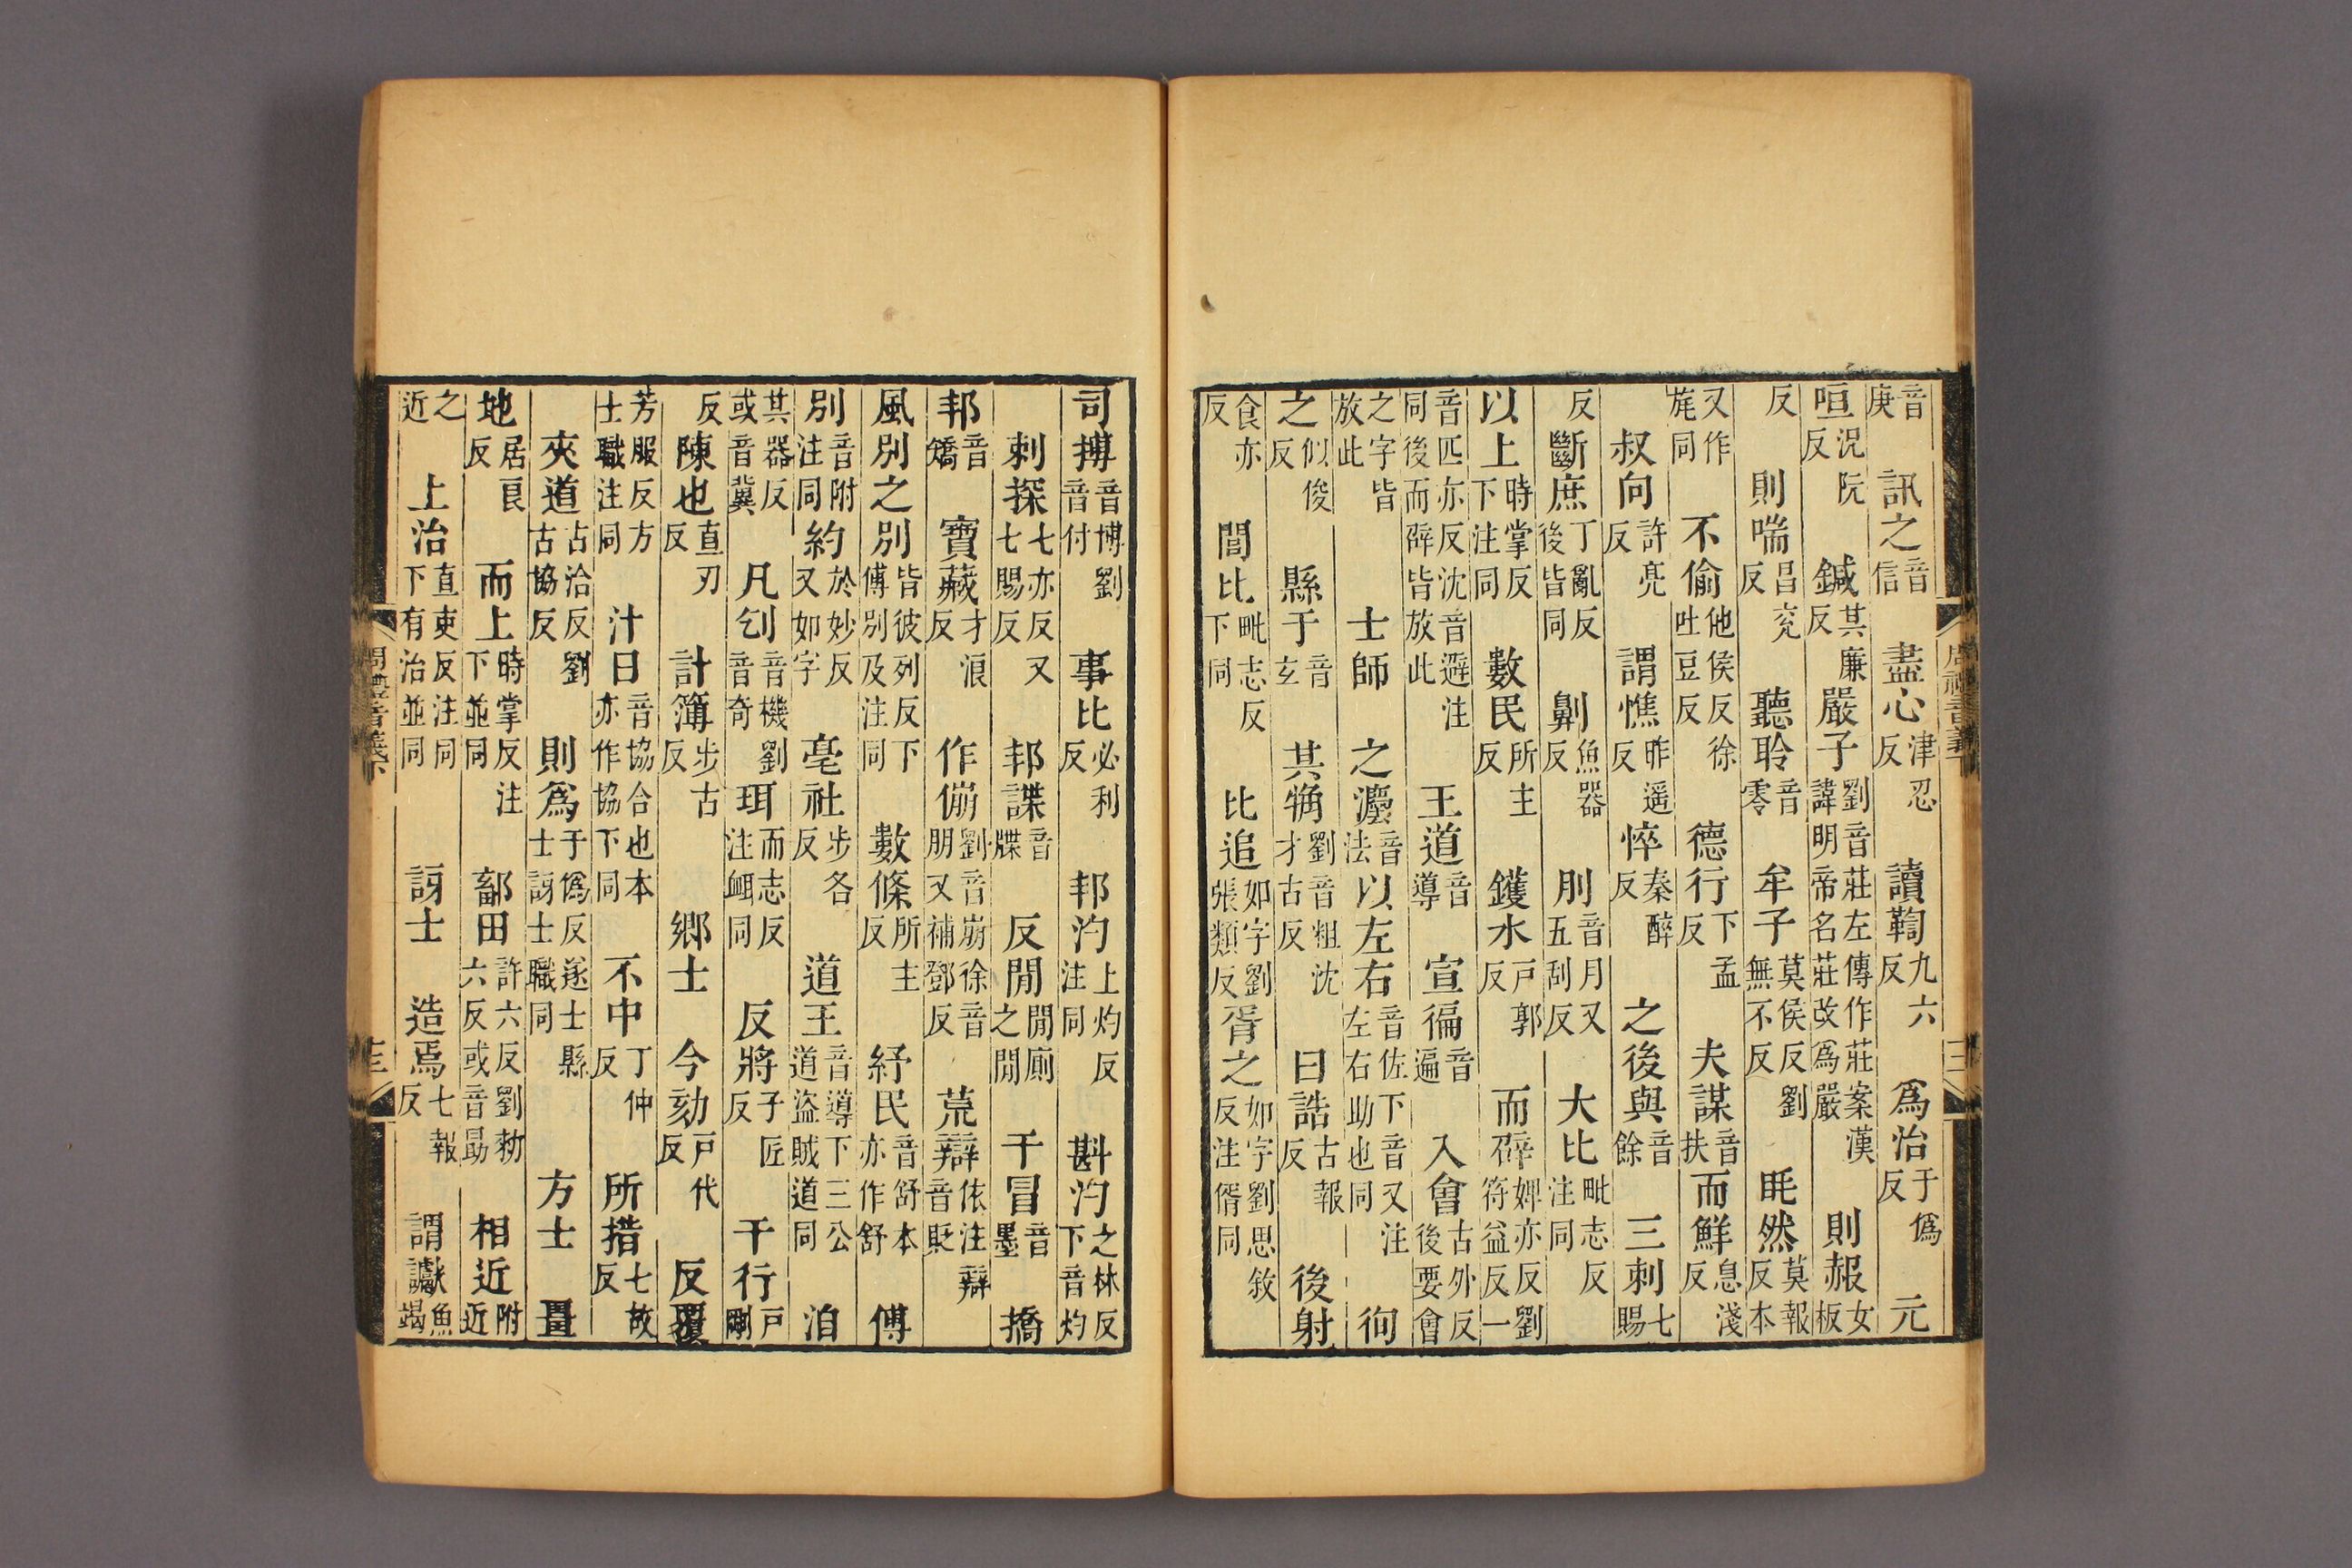 音庚訊之音信盡心津忍反讀鞫九六反爲治于僞反元
咺況阮反鍼其廉反嚴子劉音莊左傳作莊案漢諱明帝名莊改爲嚴則赧女板
反則喘昌兖反聽聆音零牟子莫侯反劉無不反眊然莫報反本
又作旄同不偷他侯反徐吐豆反德行下孟反夫謀音扶而鮮息淺反
叔向許亮反謂憔昨遥反悴秦醉反之後與音餘三刺七賜
反斷庶丁亂反後皆同劓魚器反刖音月又五刮反大比毗志反注同
以上時掌反下注同數民所主反鑊水戸郭反而婢亦反劉符益反一
音匹亦反沈音避注同後而辟皆放此王道音導宣徧音遍入會古外反後要會
之字皆放此士師之灋音法以左右音佐下音又注左右助也同徇
之似俊反縣于音玄其觕劉音粗沈才古反曰誥古報反後射
食亦反閭比毗志反下同比追如字劉張類反胥之如字劉思敘反注偦同
周禮音義下
司搏音博劉音付事比必利反邦汋上灼反注同斟汋之林反下音灼
刺探七亦反又七賜反邦諜音牒反閒閒廁之閒干冒音墨撟
邦音矯寶藏才浪反作傰劉音崩徐音朋又補鄧反荒辯依注辯音貶
風別之別皆彼列反下傅別及注同數條所主反紓民音舒本亦作舒傅
別音附注同約於妙反又如字亳社步各反道王音導下三公道盜賊道同洎
其器反或音冀凡刉音機劉音奇珥而志反注衈同反將子匠反干行戸剛
反陳也直刃反計簿步古反鄉士今劾戸代反反覆
芳服反方士職注同汁日音協合也本亦作協下同不中丁仲反所措七故反
夾道古洽反劉古協反則爲于僞反遂士縣士訝士職同方士畺
地居良反而上時掌反注下並同鄐田許六反劉勑六反或音勗相近附近
之近上治直吏反注下有治並同訝士造焉七報反謂讞魚竭
周禮音義下